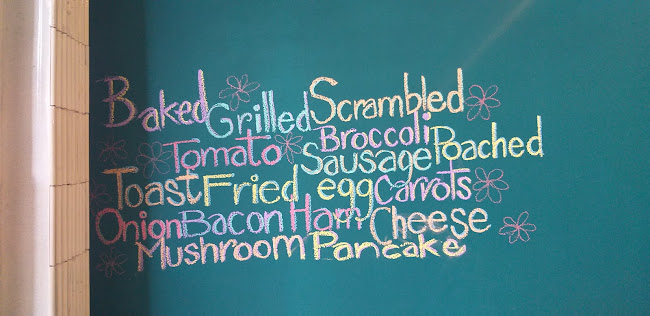 Baked Grilled Scrambled
Tomato Broccoli Sausage Poached
Toast Fried egg Carrots
Onion Bacon Ham Cheese
Mushroom Pancake